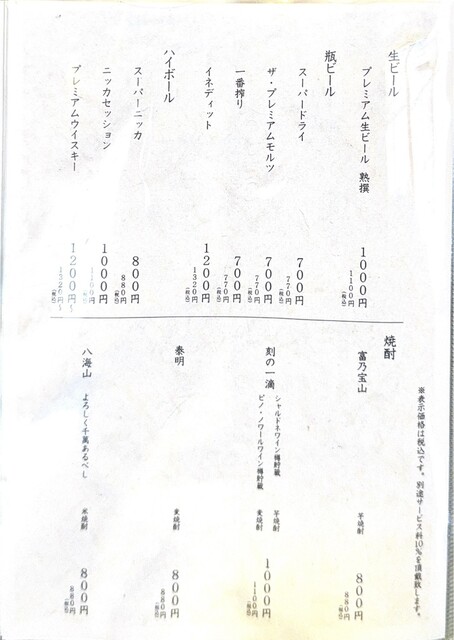 生ビール
プレミアム生ビール 熟撰 1000円
1100円(税込)
瓶ビール
スーパードライ 700円
770円(税込)
ザ・プレミアムモルツ 700円
770円(税込)
一番搾り 700円
770円(税込)
イネディット 1200円
1320円(税込)
ハイボール
スーパーニッカ 800円
880円(税込)
ニッカセッション 1000円
1100円(税込)
プレミアムウイスキー 1200円~
1320円~(税込)
※表示価格は税込です。別途サービス料10%を頂戴致します。
焼酎
富乃宝山 芋焼酎 800円
880円(税込)
刻の一滴
シャルドネワイン樽貯蔵 芋焼酎
ピノ・ノワールワイン樽貯蔵 麦焼酎
1000円
1100円(税込)
泰明 麦焼酎 800円
880円(税込)
八海山 よろしく千萬あるべし 米焼酎 800円
880円(税込)